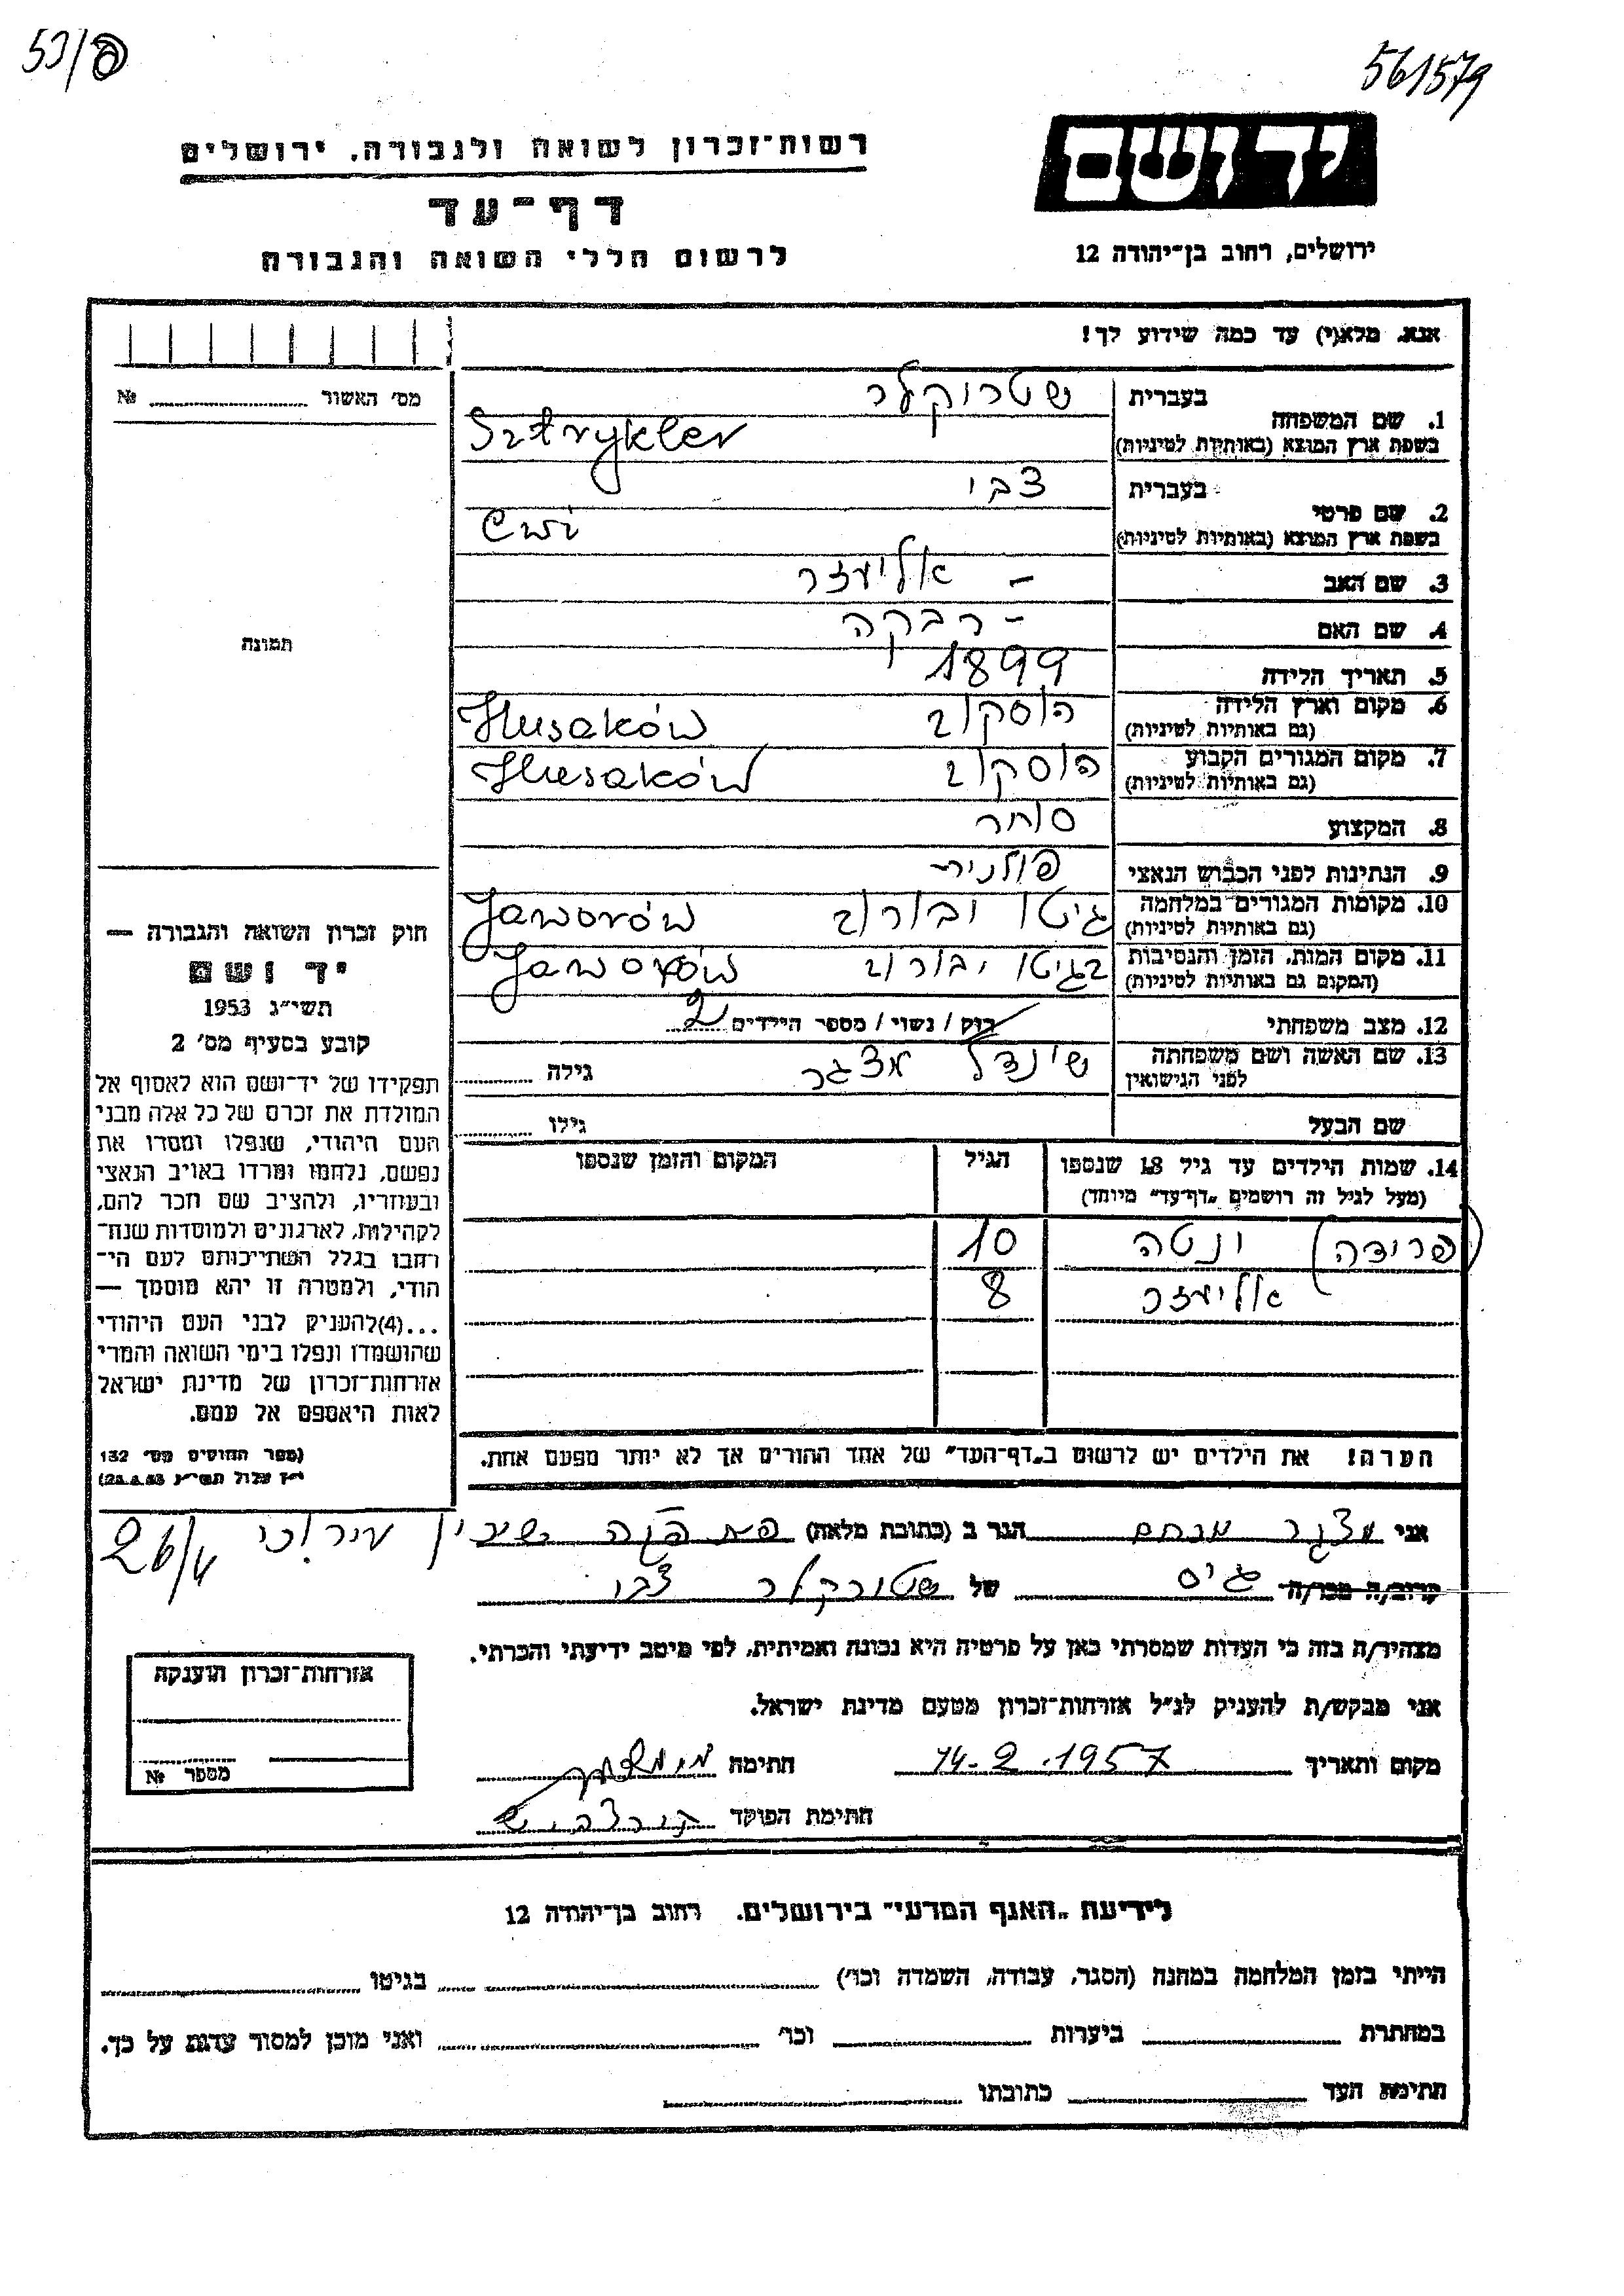 53/פ
561579
יד ושם
ירושלים, רחוב בן־יהודה 12
רשות־זכרון לשואה ולגבורה. ירושלים
דף־עד
לרשום חללי השואה והגבורה
אנא, מלא(י) עד כמה שידוע לך!
מס׳ האשור № 
תמונה
1. שם המשפחה בעברית שטרוקלר
בשפת ארץ המוצא (באותיות לטיניות) Sztrykler
2. שם פרטי בעברית צבי
בשפת ארץ המוצא (באותיות לטיניות) Cwi
3. שם האב – אליעזר
4. שם האם – רבקה
5. תאריך הלידה 1899
6. מקום וארץ הלידה (גם באותיות לטיניות) הוסקוב Husaków
7. מקום המגורים הקבוע (גם באותיות לטיניות) הוסקוב Husaków
8. המקצוע סוחר
9. הנתינות לפני הכבוש הנאצי פולנית
10. מקומות המגורים במלחמה (גם באותיות לטיניות) גיטו יבורוב Jaworów
11. מקום המות, הזמן והנסיבות (המקום גם באותיות לטיניות) בגיטו יבורוב Jaworów
12. מצב משפחתי רוק / נשוי / מספר הילדים 2
13. שם האשה ושם משפחתה לפני הנישואין שינדל מצגר גילה
שם הבעל גילו
14. שמות הילדים עד גיל 18 שנספו הגיל המקום והזמן שנספו
(מעל לגיל זה רושמים „דף־עד״ מיוחד)
(פרידה) ונטה 10
אליעזר 8
הערה! את הילדים יש לרשום ב„דף־העד״ של אחד ההורים אך לא יותר מפעם אחת.
חוק זכרון השואה והגבורה —
יד ושם
תשי״ג 1953
קובע בסעיף מס׳ 2
תפקידו של יד־ושם הוא לאסוף אל
המולדת את זכרם של כל אלה מבני
העם היהודי, שנפלו ומסרו את
נפשם, נלחמו ומרדו באויב הנאצי
ובעוזריו, ולהציב שם וזכר להם,
לקהילות, לארגונים ולמוסדות שנח־
רבו בגלל השתייכותם לעם הי־
הודי, ולמטרה זו יהא מוסמך —
...(4) להעניק לבני העם היהודי
שהושמדו ונפלו בימי השואה והמרי
אזרחות־זכרון של מדינת ישראל
לאות היאספם אל עמם.
(ספר החוקים מס׳ 132
י״ז אלול תשי״ג 28.8.53)
אני מצגר מנחם הגר ב (כתובת מלאה) שיכון עירוני 26/4
קרוב/ה מכר/ה גיס של שטורקלר צבי
מצהיר/ה בזה כי העדות שמסרתי כאן על פרטיה היא נכונה ואמיתית, לפי מיטב ידיעתי והכרתי.
אני מבקש/ת להעניק לנ״ל אזרחות־זכרון מטעם מדינת ישראל.
מקום ותאריך 14.2.1957 חתימה
חתימת הפוקד
אזרחות־זכרון הוענקה
מספר №
לידיעת „האגף המדעי״ בירושלים. רחוב בן־יהודה 12
הייתי בזמן המלחמה במחנה (הסגר, עבודה, השמדה וכו׳) בגיטו
במחתרת ביערות וכו׳ ואני מוכן למסור עדות על כך.
חתימת העד כתובתו